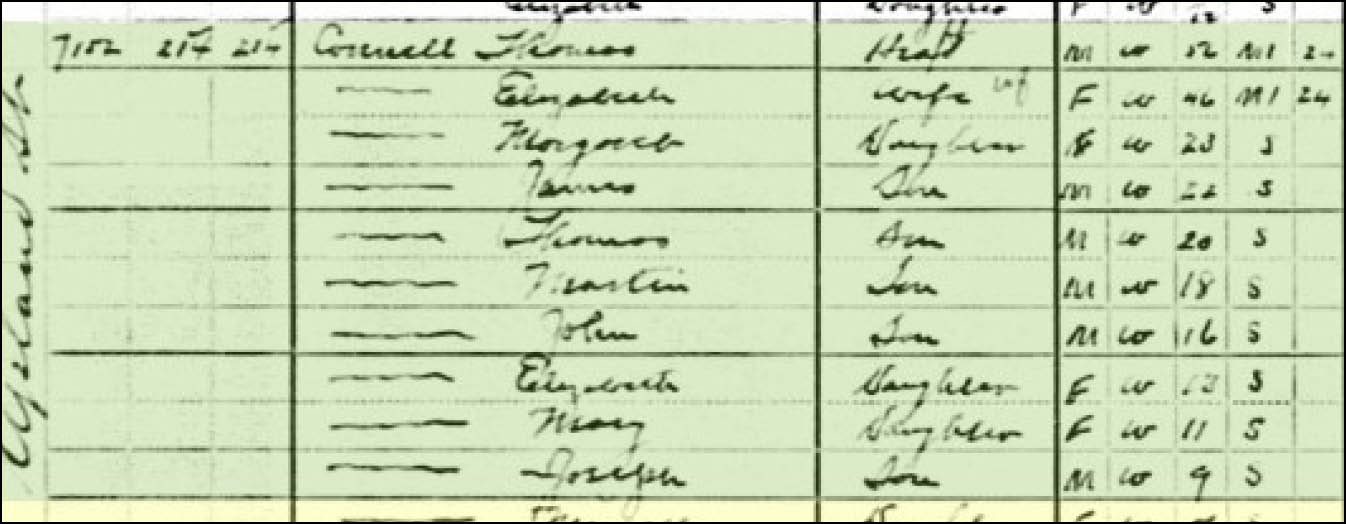 Elizabeth Daughter F W 12 S
7152 214 214 Connell Thomas Head M W 52 M1 24
— Elizabeth wife F W 46 M1 24
— Margaret Daughter F W 23 S
— James Son M W 22 S
— Thomas Son M W 20 S
— Martin Son M W 18 S
— John Son M W 16 S
— Elizabeth Daughter F W 13 S
— Mary Daughter F W 11 S
— Joseph Son M W 9 S